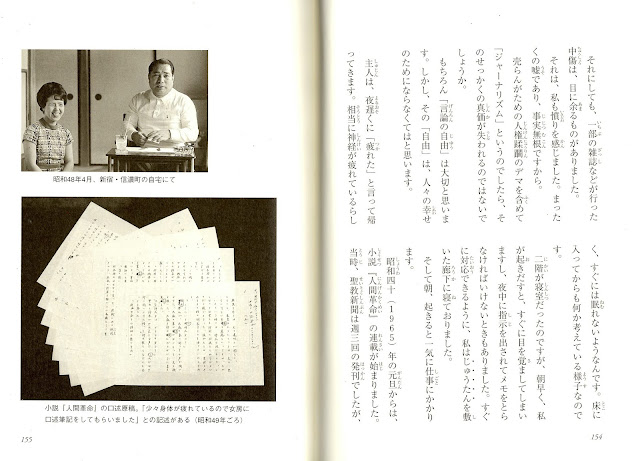 それにしても、一部の雑誌などが行った
中傷は、目に余るものがありました。
それは、私も憤りを感じました。まった
くの嘘であり、事実無根ですから。
売らんがための人権蹂躙のデマを含めて
「ジャーナリズム」というのでしたら、そ
のせっかくの真価が失われるのではないで
しょうか。
もちろん「言論の自由」は大切と思いま
す。しかし、その「自由」は、人々の幸せ
のためにならなくてはと思います。
主人は、夜遅くに「疲れた」と言って帰
ってきます。相当に神経が疲れているらし
く、すぐには眠れないようなんです。床に
入ってからも何か考えている様子なので
す。
二階が寝室だったのですが、朝早く、私
が起きだすと、すぐに目を覚ましてしまい
ますし、夜中に指示を出されてメモをとら
なければいけないときもありました。すぐ
に対応できるように、私はじゅうたんを敷
いた廊下に寝ておりました。
そして朝、起きると一気に仕事にかかり
ます。
昭和四十(1965)年の元旦からは、
小説『人間革命』の連載が始まりました。
当時、聖教新聞は週三回の発刊でしたが、
154
昭和48年4月、新宿・信濃町の自宅にて
小説『人間革命』の口述原稿。「少々身体が疲れているので女房に
口述筆記をしてもらいました」との記述がある(昭和49年ごろ)
155